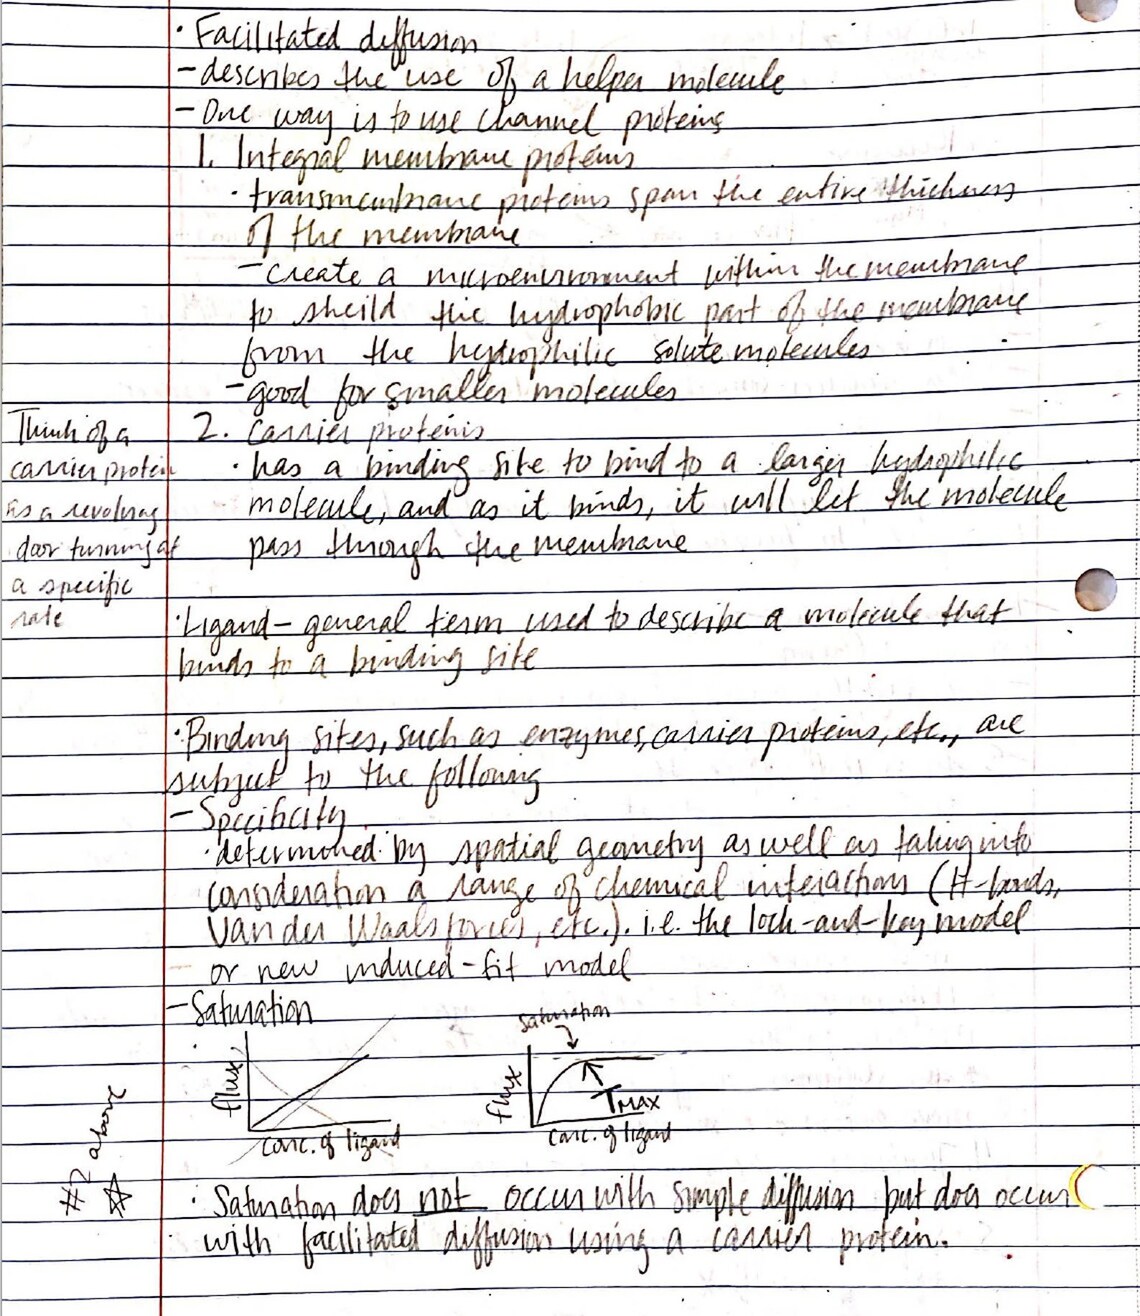 · Facilitated diffusion
- describes the use of a helper molecule
- One way is to use channel proteins
1. Integral membrane proteins
· transmembrane proteins span the entire thickness
of the membrane
- create a microenvironment within the membrane
to sheild the hydrophobic part of the membrane
from the hydrophilic solute molecules
- good for smaller molecules
2. Carrier proteins
· has a binding site to bind to a larger hydrophilic
molecule, and as it binds, it will let the molecule
pass through the membrane
Think of a
carrier protein
as a revolving
door turning at
a specific
rate
· Ligand - general term used to describe a molecule that
binds to a binding site
· Binding sites, such as enzymes, carrier proteins, etc., are
subject to the following
- Specificity
· determined by spatial geometry as well as taking into
consideration a range of chemical interactions (H-bonds,
Van der Waals forces, etc.). i.e. the lock-and-key model
or new induced-fit model
- Saturation
flux
conc. of ligand
saturation
flux
TMAX
conc. of ligand
#2 above
· Saturation does not occur with simple diffusion but does occur
with facilitated diffusion using a carrier protein.